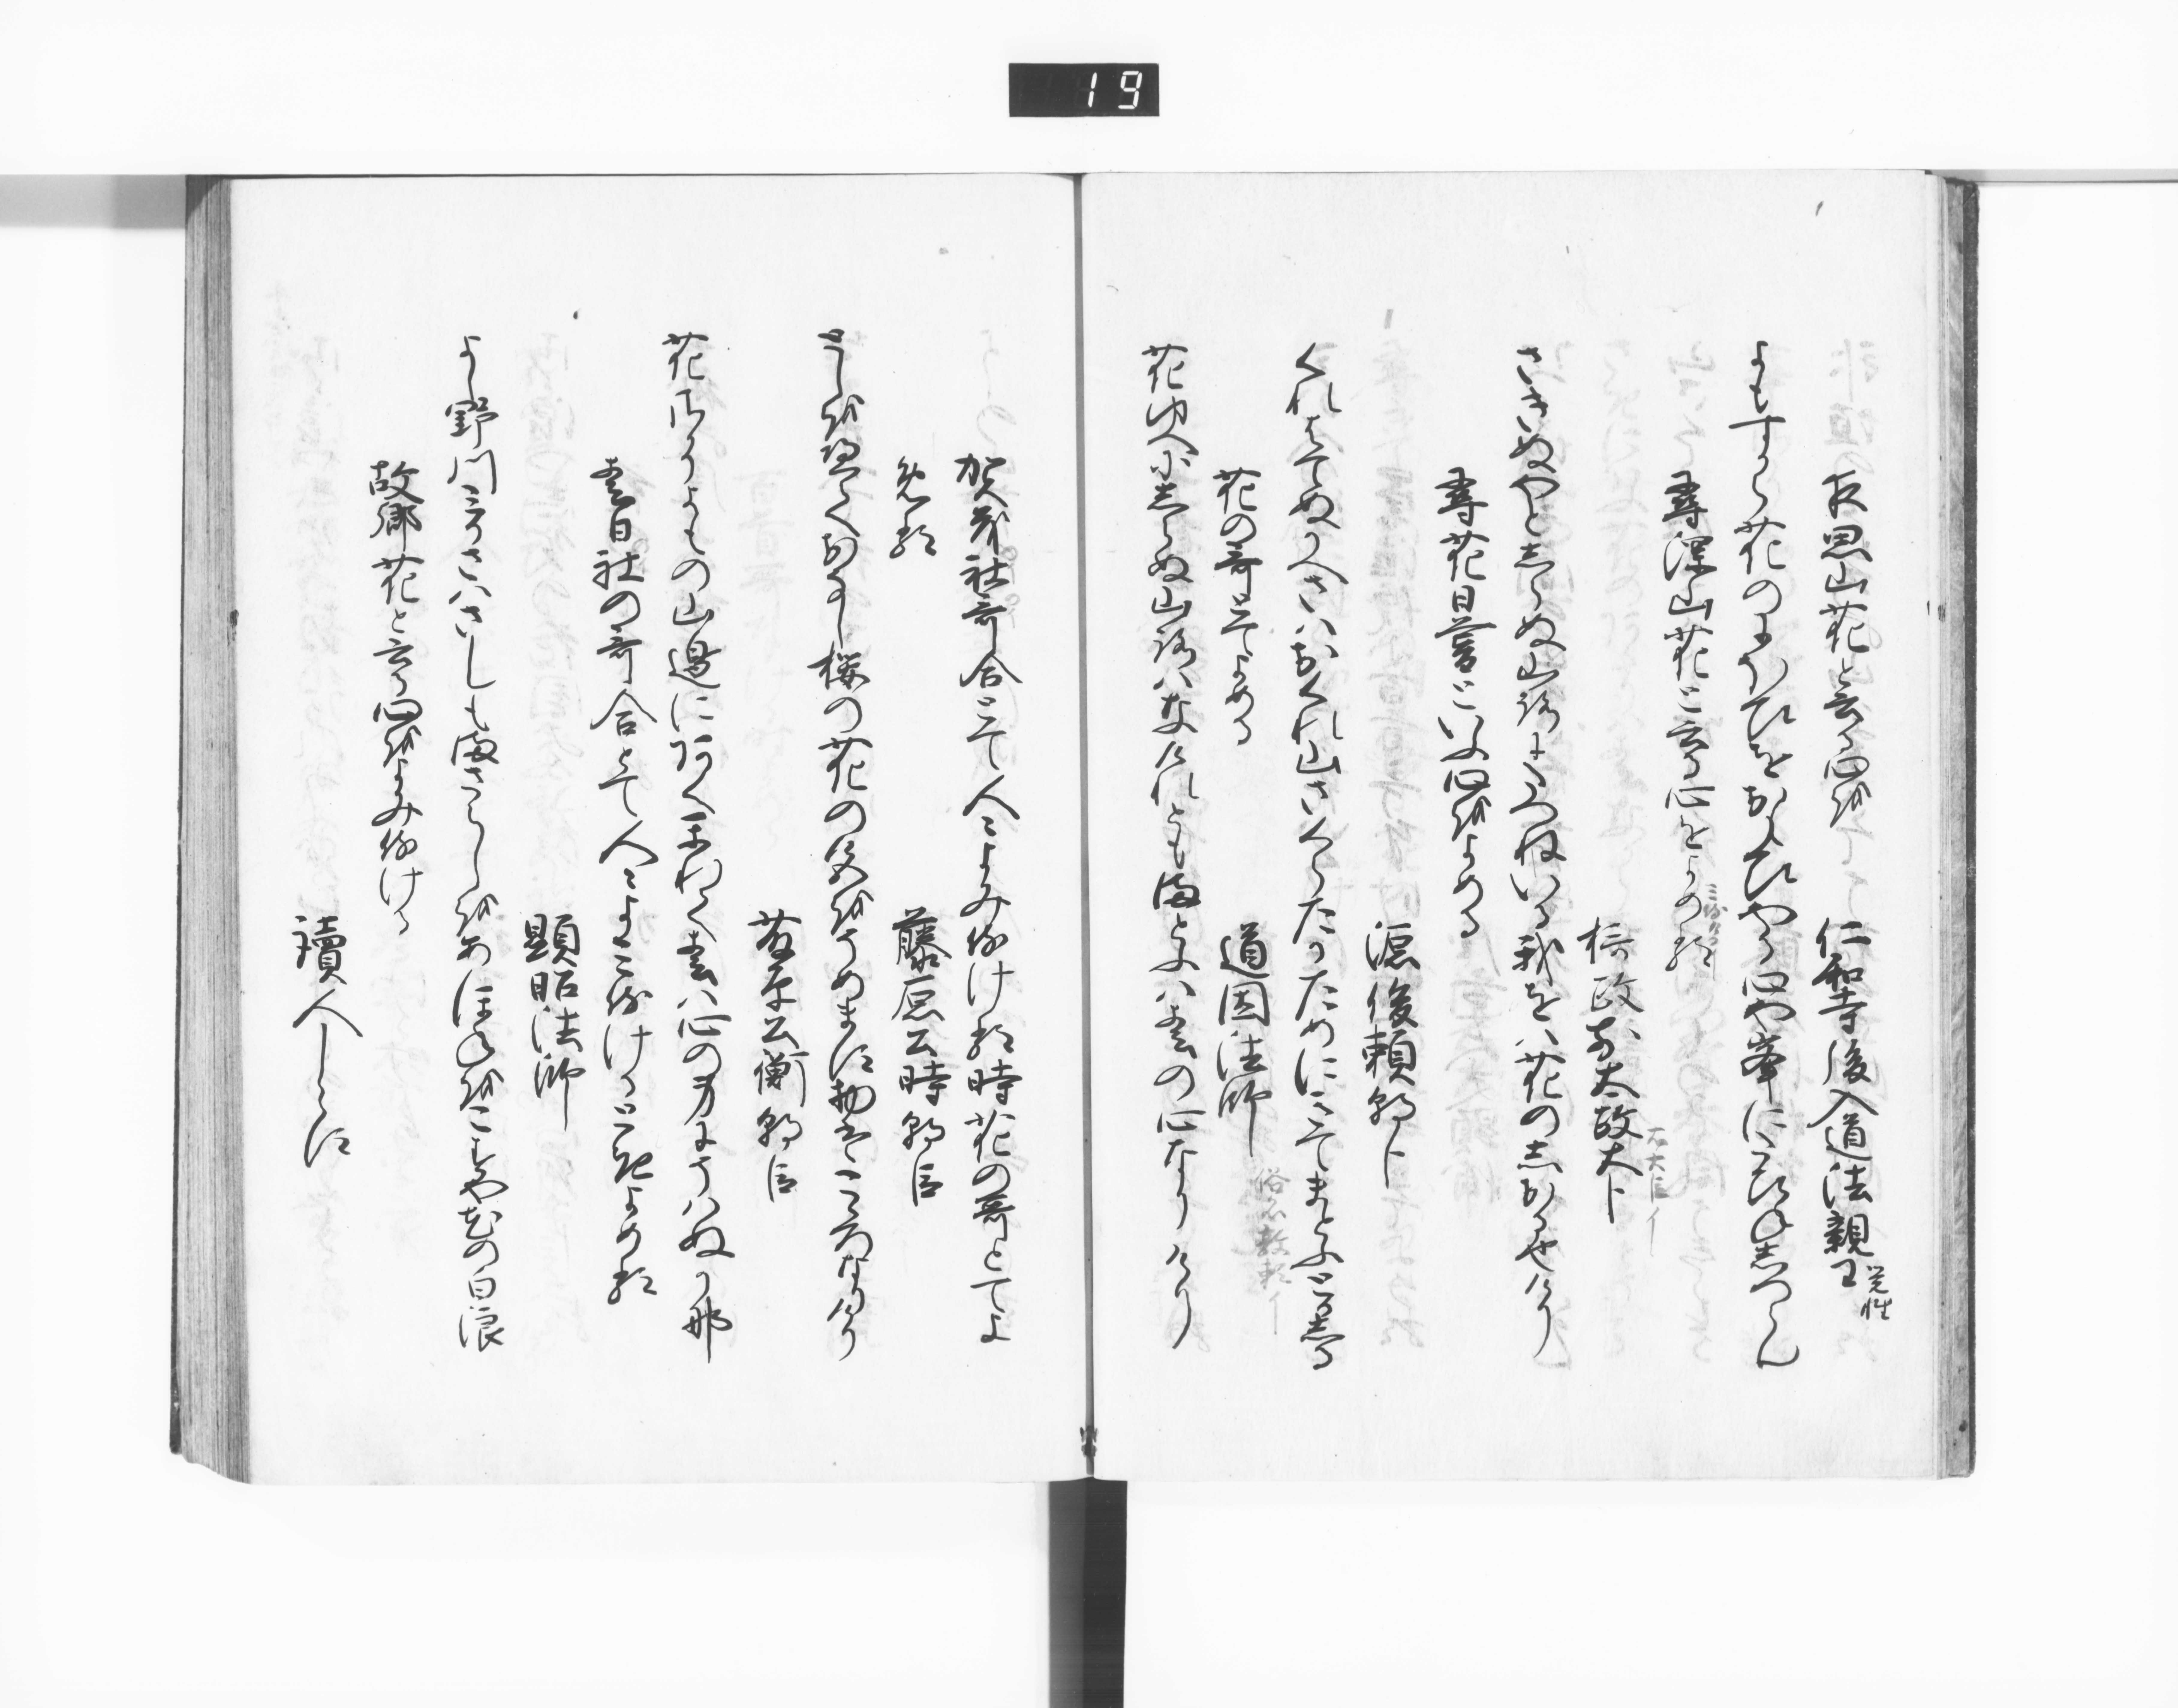 19
夜思山花と云る心を
仁和寺後入道法親王覚性
よもすから花のにほひをおもひやる心や峯にたひねしつらん
尋深山花と云る心をよめる
み侍ける
摂政前太政大臣
右大臣イ
さきぬやとしらぬ山路にたつねいる我をは花のしをるなりけり
尋花日暮といふ心をよめる
源俊頼朝臣
くれはてぬかへさはおくれ山さくらたかためにきてまとふとかしる
花の哥とてよめる
道因法師
俗名敦頼イ
花ゆへにしらぬ山路はなけれともまとふは春の心なりけり
賀茂社哥合とて人々よみ侍ける時花の哥とてよ
める
藤原公時朝臣
としをへておなし桜の花の色をそめます物は心なりけり
藤原公衡朝臣
花さかりよもの山邊にあくかれて春は心の身にそはぬかな
春日社の哥合とて人々よみ侍けるときよめる
顕昭法師
よし野川みかさはさしもまさらしをあをねをこすや花の白浪
故郷花と云る心をよみ侍ける
讀人しらす